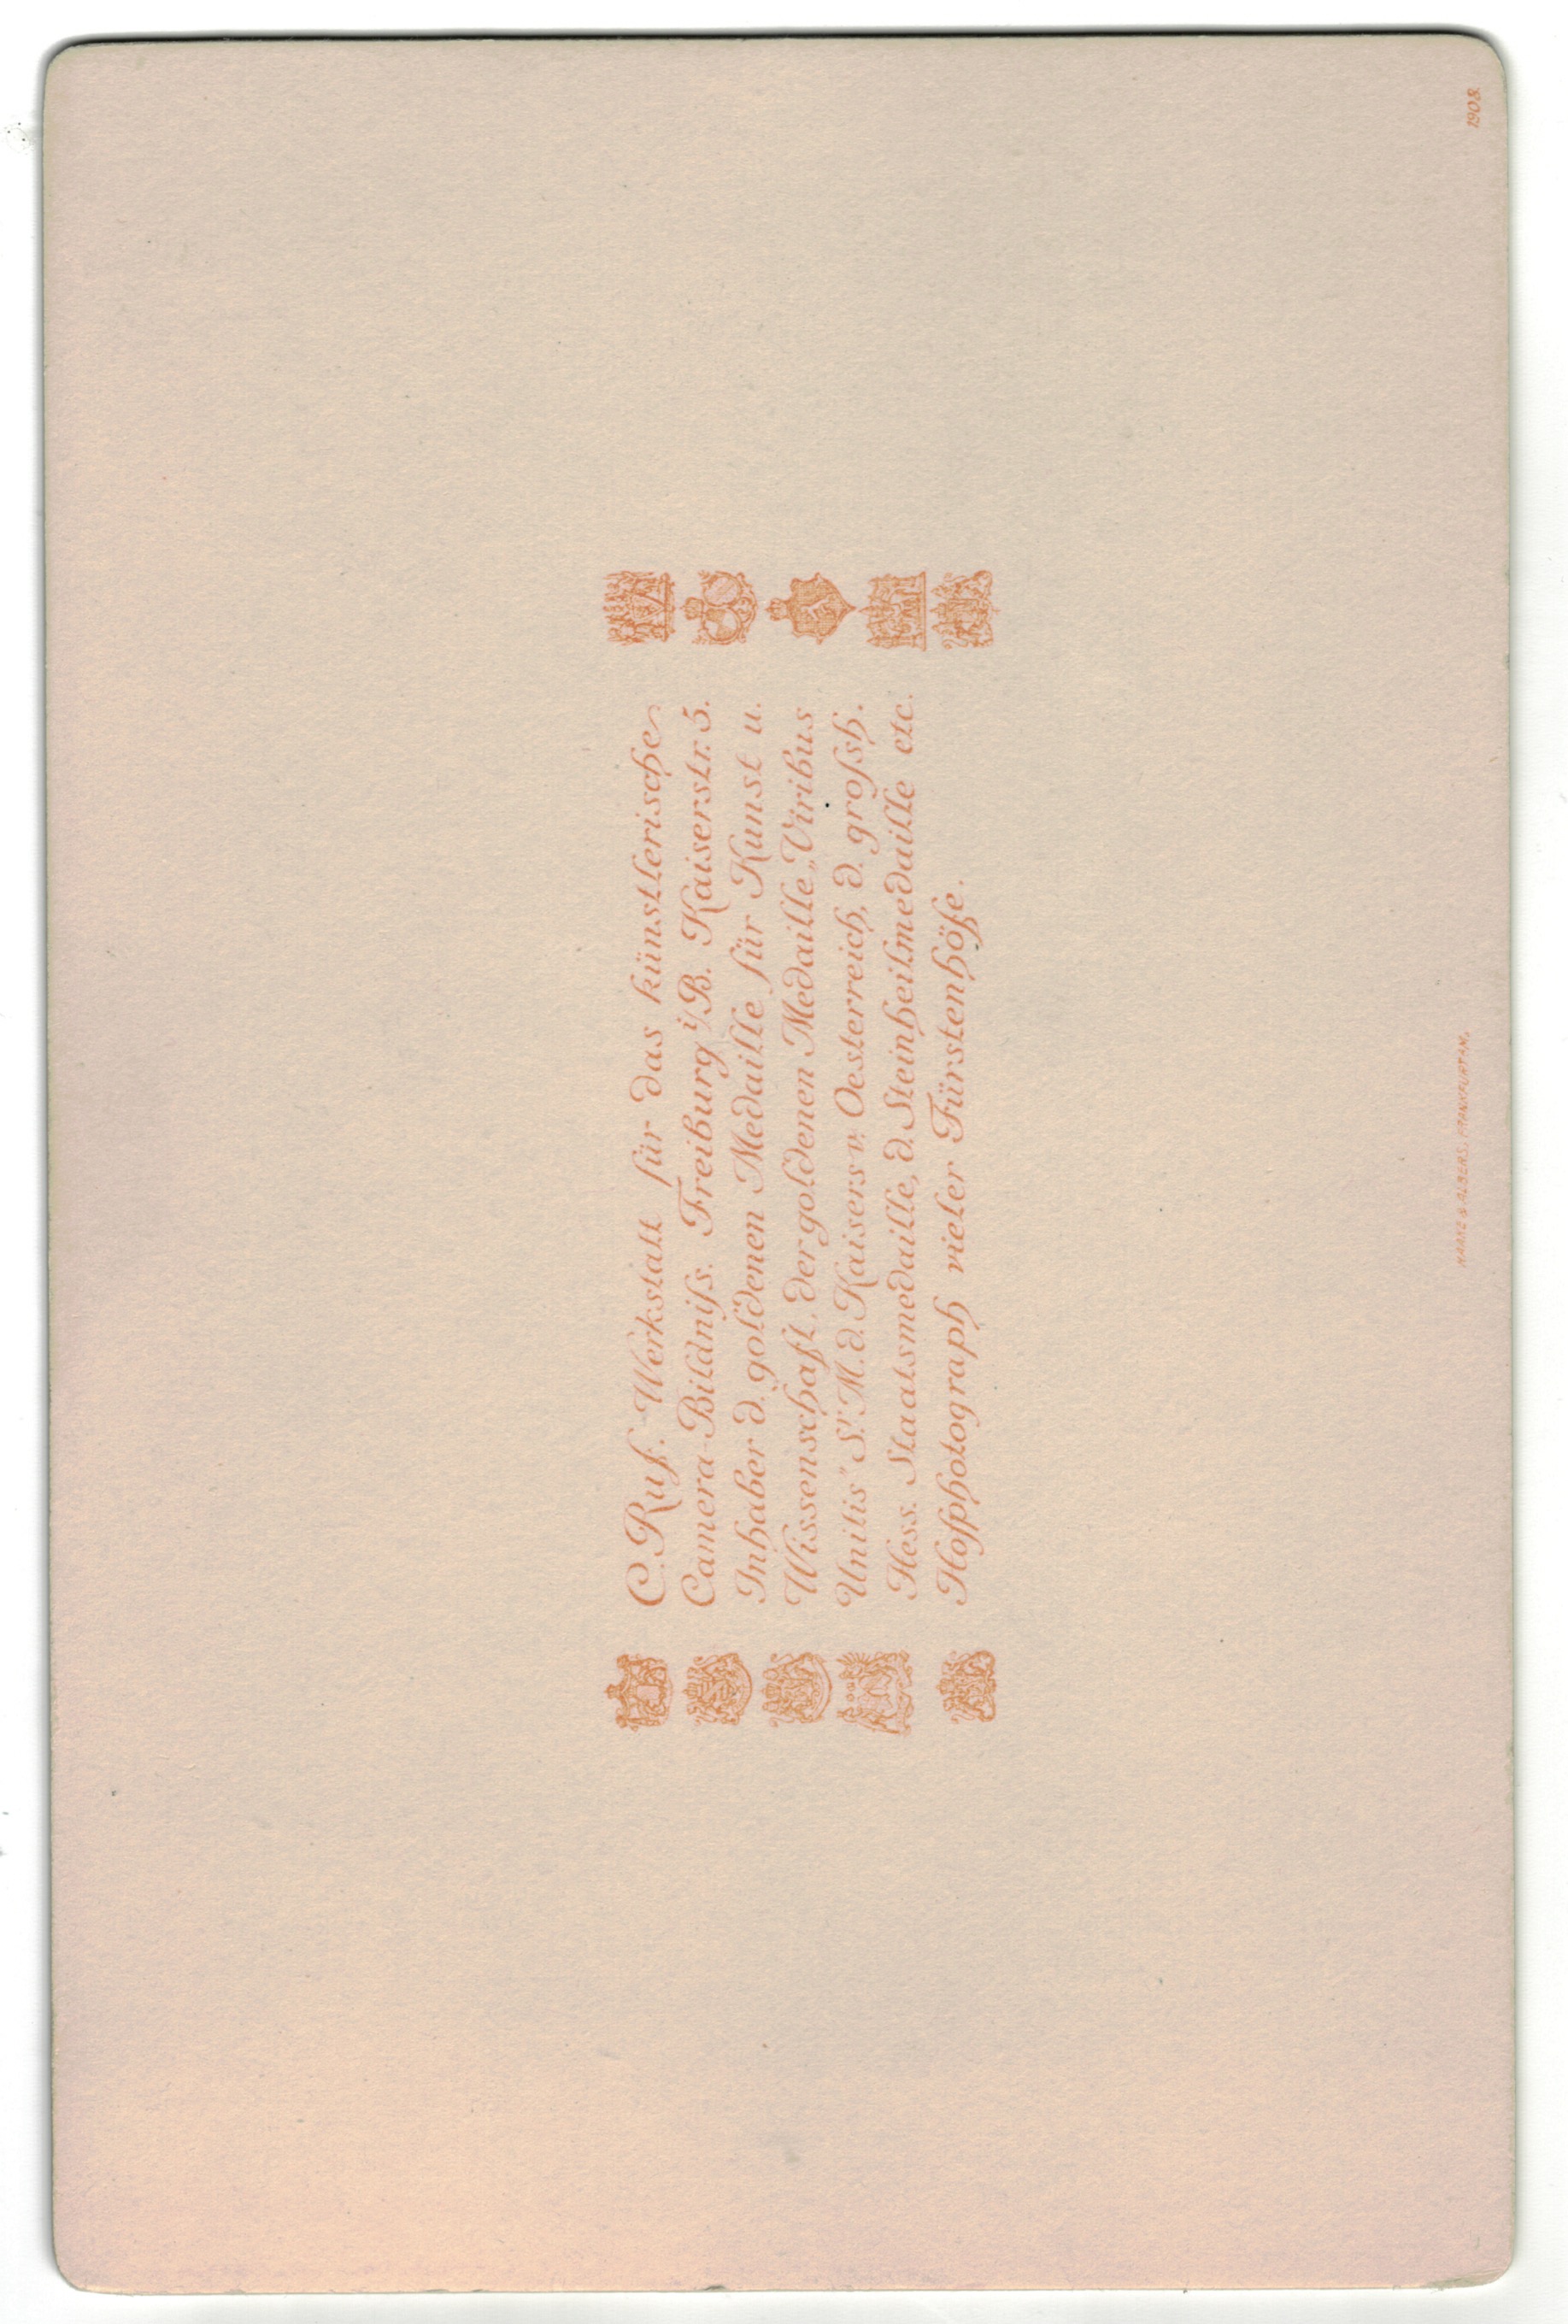 C. Ruf. Werkstatt für das künstlerische
Camera-Bildniſs. Freiburg i/B. Kaiserstr. 5.
Inhaber d. goldenen Medaille für Kunst u.
Wissenschaft, der goldenen Medaille „Viribus
Unitis" Sr. M. d. Kaisers v. Oesterreich, d. groſsh.
Hess. Staatsmedaille, d. Steinheilmedaille etc.
Hofphotograph vieler Fürstenhöfe.
HAAKE & ALBERS, FRANKFURT A/M.
1908.